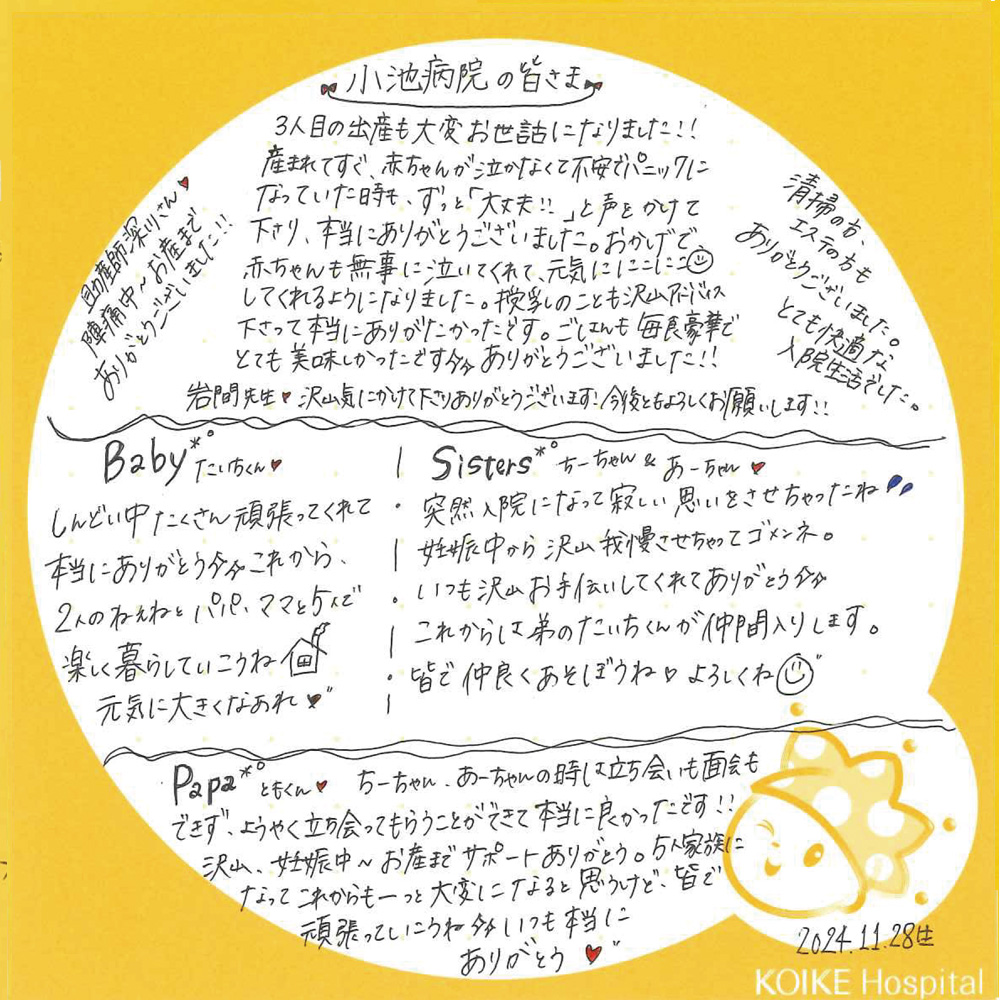 小池病院の皆さま
3人目の出産も大変お世話になりました!!
産まれてすぐ、赤ちゃんが泣かなくて不安でパニックに
なっていた時も、ずっと「大丈夫!!」と声をかけて
下さり、本当にありがとうございました。おかげで
赤ちゃんも無事に泣いてくれて、元気ににこにこ
してくれるようになりました。授乳のことも沢山アドバイス
下さって本当にありがたかったです。ごはんも毎食豪華で
とても美味しかったです ありがとうございました!!
岩間先生♥ 沢山気にかけて下さりありがとうございます!今後ともよろしくお願いします!!
助産師深川さん♥
陣痛中〜お産まで
ありがとうございました!!
清掃の方、
エステの方も
ありがとうございました。
とても快適な
入院生活でした。
Baby*° たいちくん♥
しんどい中たくさん頑張ってくれて
本当にありがとう これから、
2人のねぇねと パパ、ママと5人で
楽しく暮らしていこうね
元気に大きくなあれ♥"
Sisters*° ちーちゃん & あーちゃん♥
突然入院になって寂しい思いをさせちゃったね
妊娠中から沢山我慢させちゃってゴメンネ。
いつも沢山お手伝いしてくれてありがとう
これからは弟のたいちくんが仲間入りします。
皆で仲良くあそぼうね♡ よろしくね"
Papa*° ともくん♥ ちーちゃん、あーちゃんの時は立ち会いも面会も
できず、ようやく立ち会ってもらうことができて本当に良かったです!!
沢山、妊娠中〜お産までサポートありがとう。5人家族に
なってこれからもーっと大変になると思うけど、皆で
頑張っていこうね いつも本当に
ありがとう♥"
2024.11.28生
KOIKE Hospital